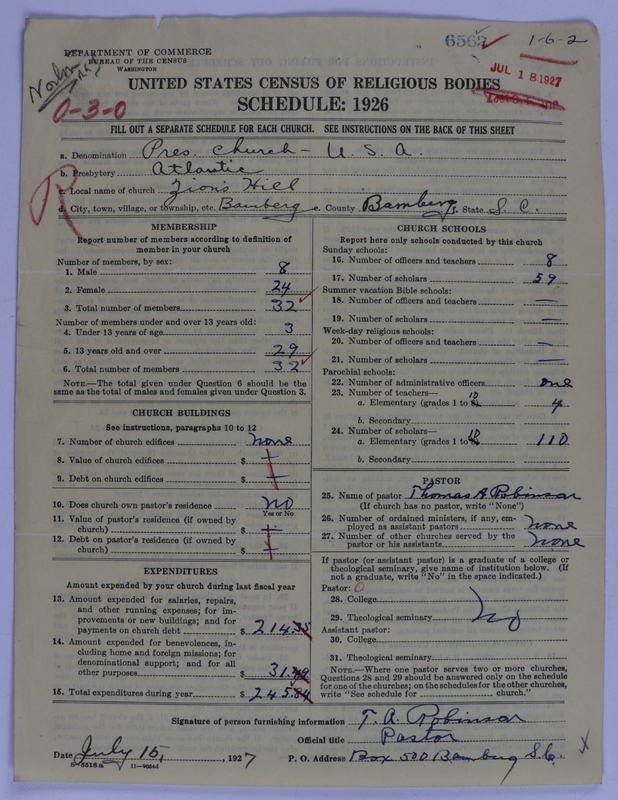 DEPARTMENT OF COMMERCE
BUREAU OF THE CENSUS
WASHINGTON
6562
1-6-2
JUL 18 1927
0-3-0
UNITED STATES CENSUS OF RELIGIOUS BODIES
SCHEDULE: 1926
FILL OUT A SEPARATE SCHEDULE FOR EACH CHURCH. SEE INSTRUCTIONS ON THE BACK OF THIS SHEET
a. Denomination Pres. Church - U. S. A.
b. Presbytery Atlantic
c. Local name of church Zion's Hill
d. City, town, village, or township, etc. Bamberg e. County Bamberg f. State S. C.
MEMBERSHIP
Report number of members according to definition of
member in your church
Number of members, by sex:
1. Male 8
2. Female 24
3. Total number of members 32
Number of members under and over 13 years old:
4. Under 13 years of age 3
5. 13 years old and over 29
6. Total number of members 32
NOTE.—The total given under Question 6 should be the
same as the total of males and females given under Question 3.
CHURCH BUILDINGS
See instructions, paragraphs 10 to 12
7. Number of church edifices none
8. Value of church edifices $
9. Debt on church edifices $
10. Does church own pastor's residence No
Yes or No
11. Value of pastor's residence (if owned by
church) $
12. Debt on pastor's residence (if owned by
church) $
EXPENDITURES
Amount expended by your church during last fiscal year
13. Amount expended for salaries, repairs,
and other running expenses; for im-
provements or new buildings; and for
payments on church debt $ 214.35
14. Amount expended for benevolences, in-
cluding home and foreign missions; for
denominational support; and for all
other purposes $ 31.49
15. Total expenditures during year $ 245.84
CHURCH SCHOOLS
Report here only schools conducted by this church
Sunday schools:
16. Number of officers and teachers 8
17. Number of scholars 59
Summer vacation Bible schools:
18. Number of officers and teachers —
19. Number of scholars —
Week-day religious schools:
20. Number of officers and teachers —
21. Number of scholars —
Parochial schools:
22. Number of administrative officers one
23. Number of teachers—
a. Elementary (grades 1 to 10 4
b. Secondary
24. Number of scholars—
a. Elementary (grades 1 to 10 110
b. Secondary
PASTOR
25. Name of pastor Thomas A Robinson
(If church has no pastor, write "None")
26. Number of ordained ministers, if any, em-
ployed as assistant pastors none
27. Number of other churches served by the
pastor or his assistants none
If pastor (or assistant pastor) is a graduate of a college or
theological seminary, give name of institution below. (If
not a graduate, write "No" in the space indicated.)
Pastor: 0
28. College
29. Theological seminary No
Assistant pastor:
30. College
31. Theological seminary
NOTE.—Where one pastor serves two or more churches,
Questions 28 and 29 should be answered only on the schedule
for one of the churches; on the schedules for the other churches,
write "See schedule for church."
Signature of person furnishing information T. A. Robinson
Official title Pastor
Date July 15, 1927 P. O. Address Box 500 Bamberg S.C.